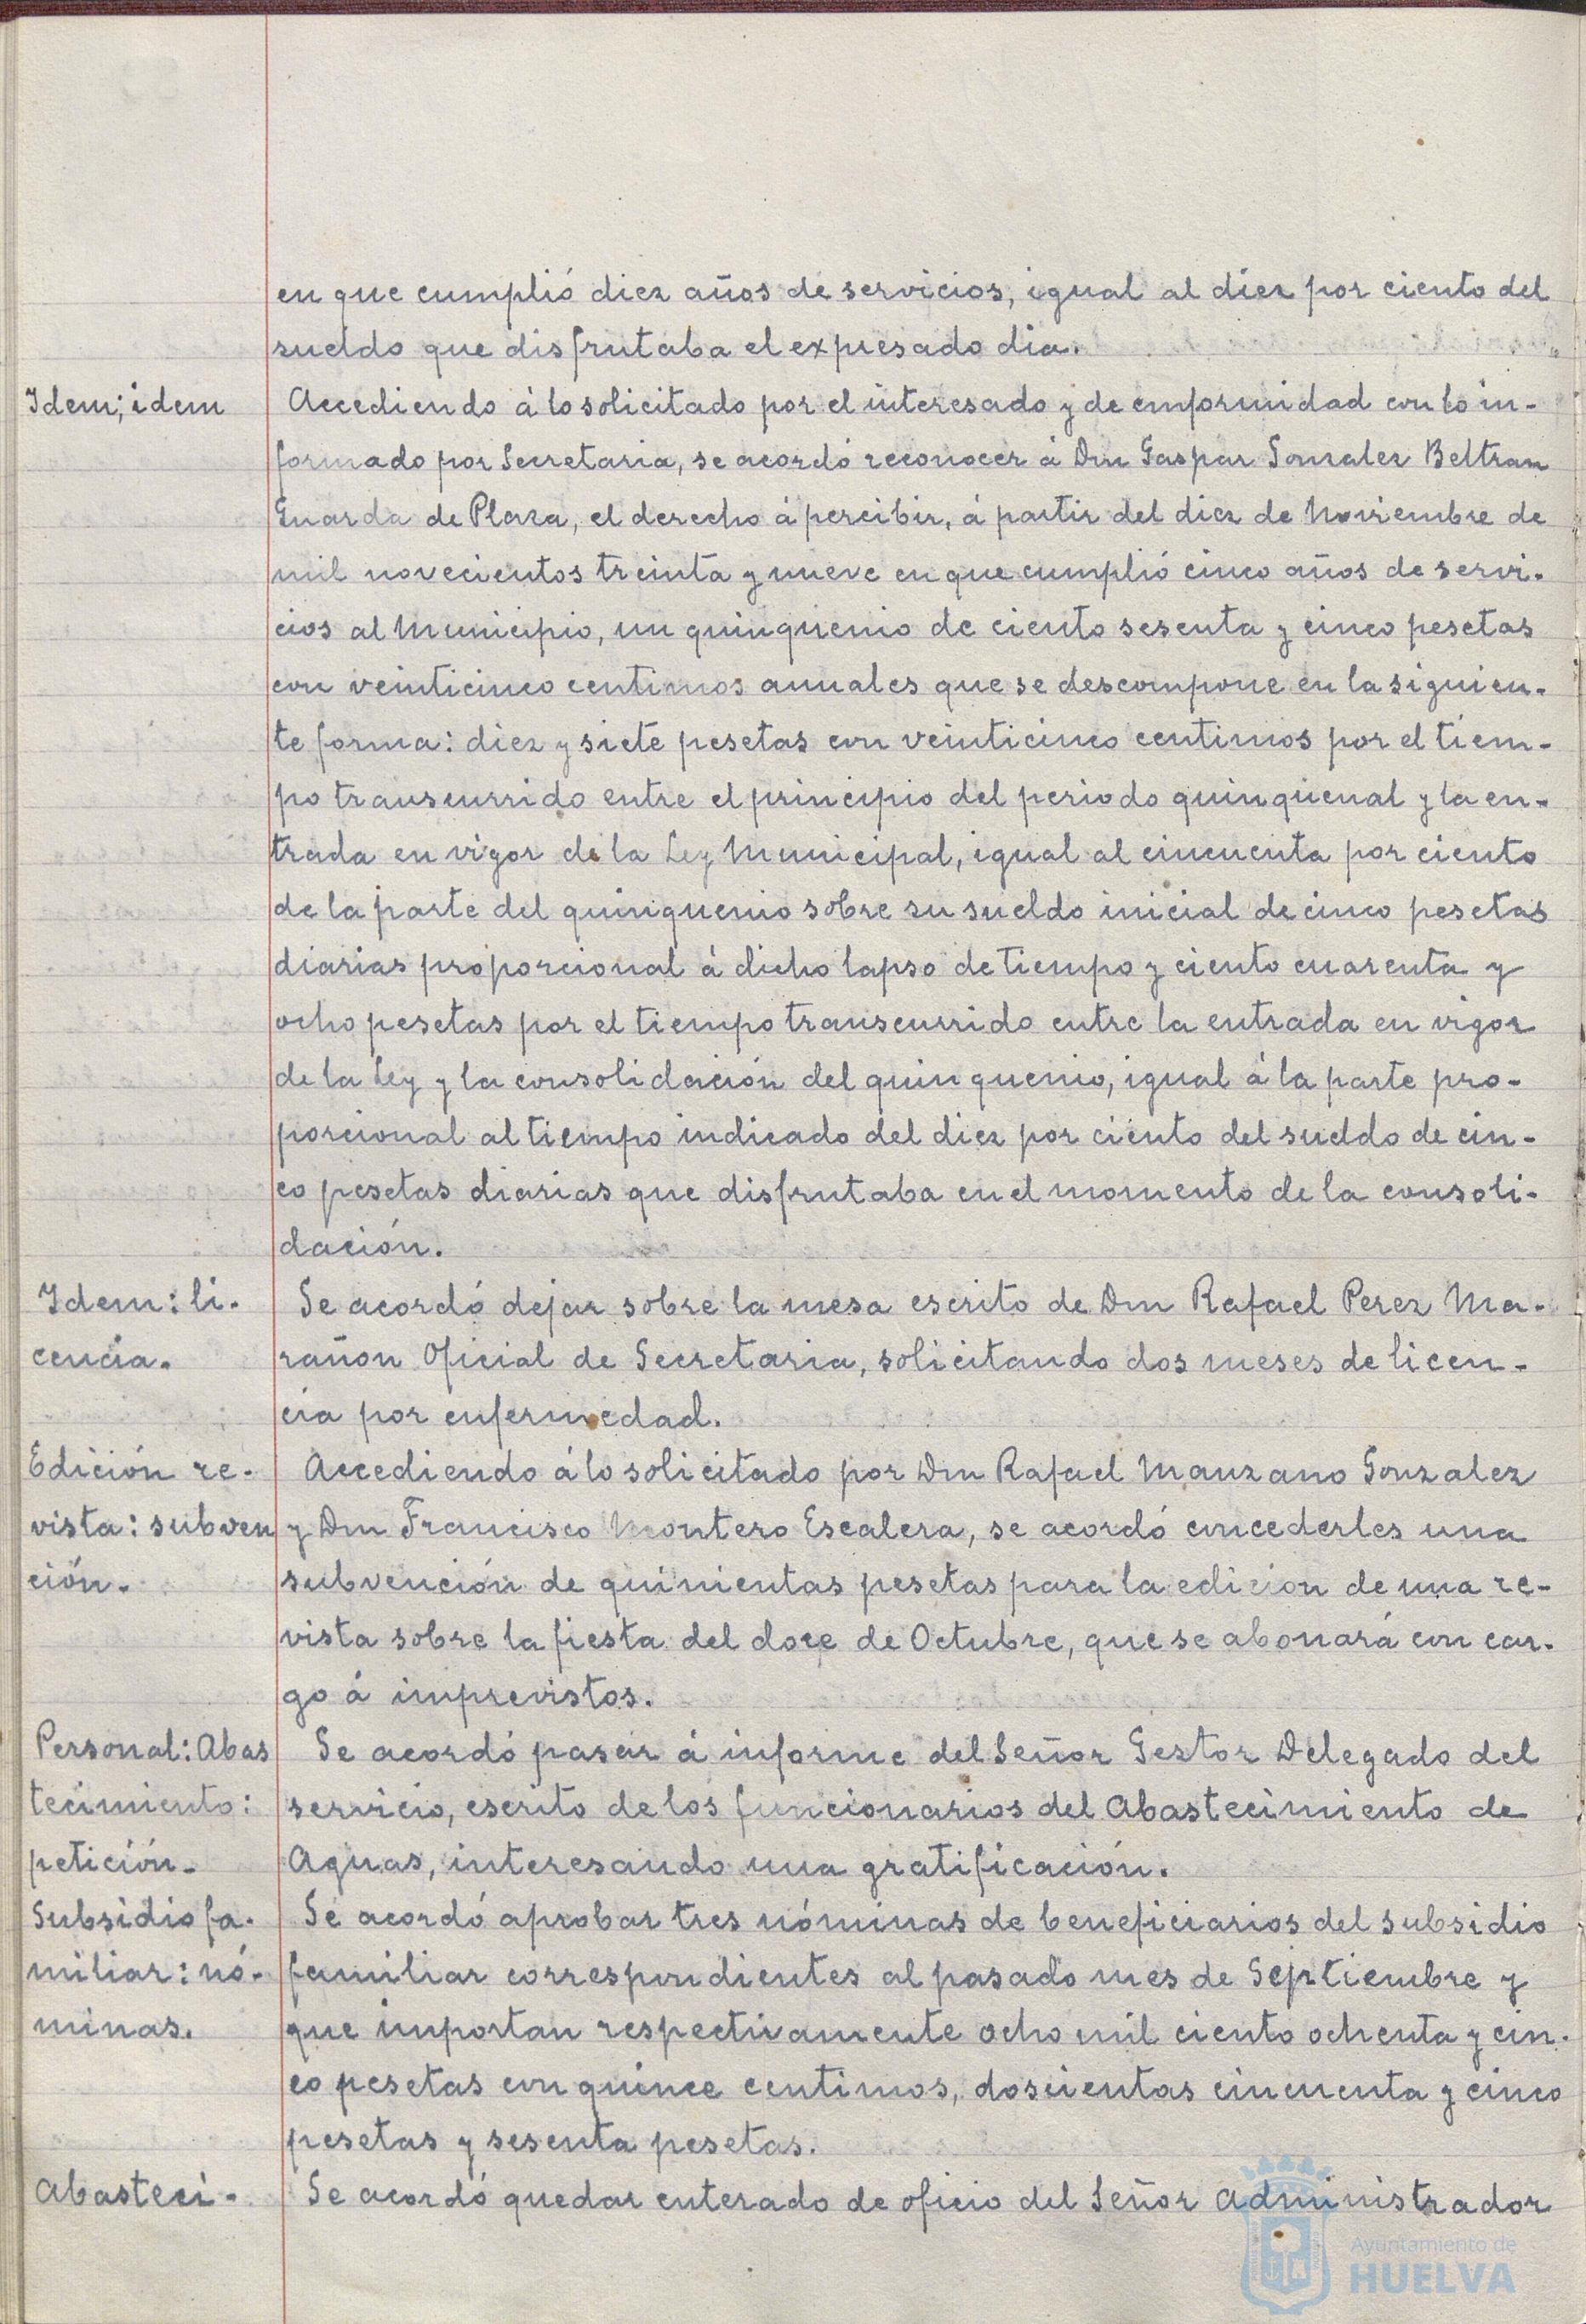 en que cumplió diez años de servicios, igual al diez por ciento del
sueldo que disfrutaba el expresado dia.
Idem; idem
Accediendo á lo solicitado por el interesado y de conformidad con lo in-
formado por Secretaria, se acordó reconocer á Don Gaspar Gonzalez Beltran
Guarda de Plaza, el derecho á percibir, á partir del diez de Noviembre de
mil novecientos treinta y nueve en que cumplió cinco años de servi-
cios al Municipio, un quinquenio de ciento sesenta y cinco pesetas
con veinticinco centimos anuales que se descompone en la siguien-
te forma: diez y siete pesetas con veinticinco centimos por el tiem-
po transcurrido entre el principio del periodo quinquenal y la en-
trada en vigor de la Ley Municipal, igual al cincuenta por ciento
de la parte del quinquenio sobre su sueldo inicial de cinco pesetas
diarias proporcional á dicho lapso de tiempo y ciento cuarenta y
ocho pesetas por el tiempo transcurrido entre la entrada en vigor
de la Ley y la consolidación del quinquenio, igual á la parte pro-
porcional al tiempo indicado del diez por ciento del sueldo de cin-
co pesetas diarias que disfrutaba en el momento de la consoli-
dación.
Idem: li-
cencia.
Se acordó dejar sobre la mesa escrito de Don Rafael Perez Ma-
rañon Oficial de Secretaria, solicitando dos meses de licen-
cia por enfermedad.
Edición re-
vista: subven
ción.
Accediendo á lo solicitado por Don Rafael Manzano Gonzalez
y Don Francisco Montero Escalera, se acordó concederles una
subvención de quinientas pesetas para la edicion de una re-
vista sobre la fiesta del doce de Octubre, que se abonará con car-
go á imprevistos.
Personal: Abas
tecimiento:
petición.
Se acordó pasar á informe del Señor Gestor Delegado del
servicio, escrito de los funcionarios del Abastecimiento de
Aguas, interesando una gratificación.
Subsidio fa-
miliar: nó-
minas.
Se acordó aprobar tres nóminas de beneficiarios del subsidio
familiar correspondientes al pasado mes de Septiembre y
que importan respectivamente ocho mil ciento ochenta y cin-
co pesetas con quince centimos, doscientas cincuenta y cinco
pesetas y sesenta pesetas.
Abasteci-
Se acordó quedar enterado de oficio del Señor Administrador
Ayuntamiento de
HUELVA